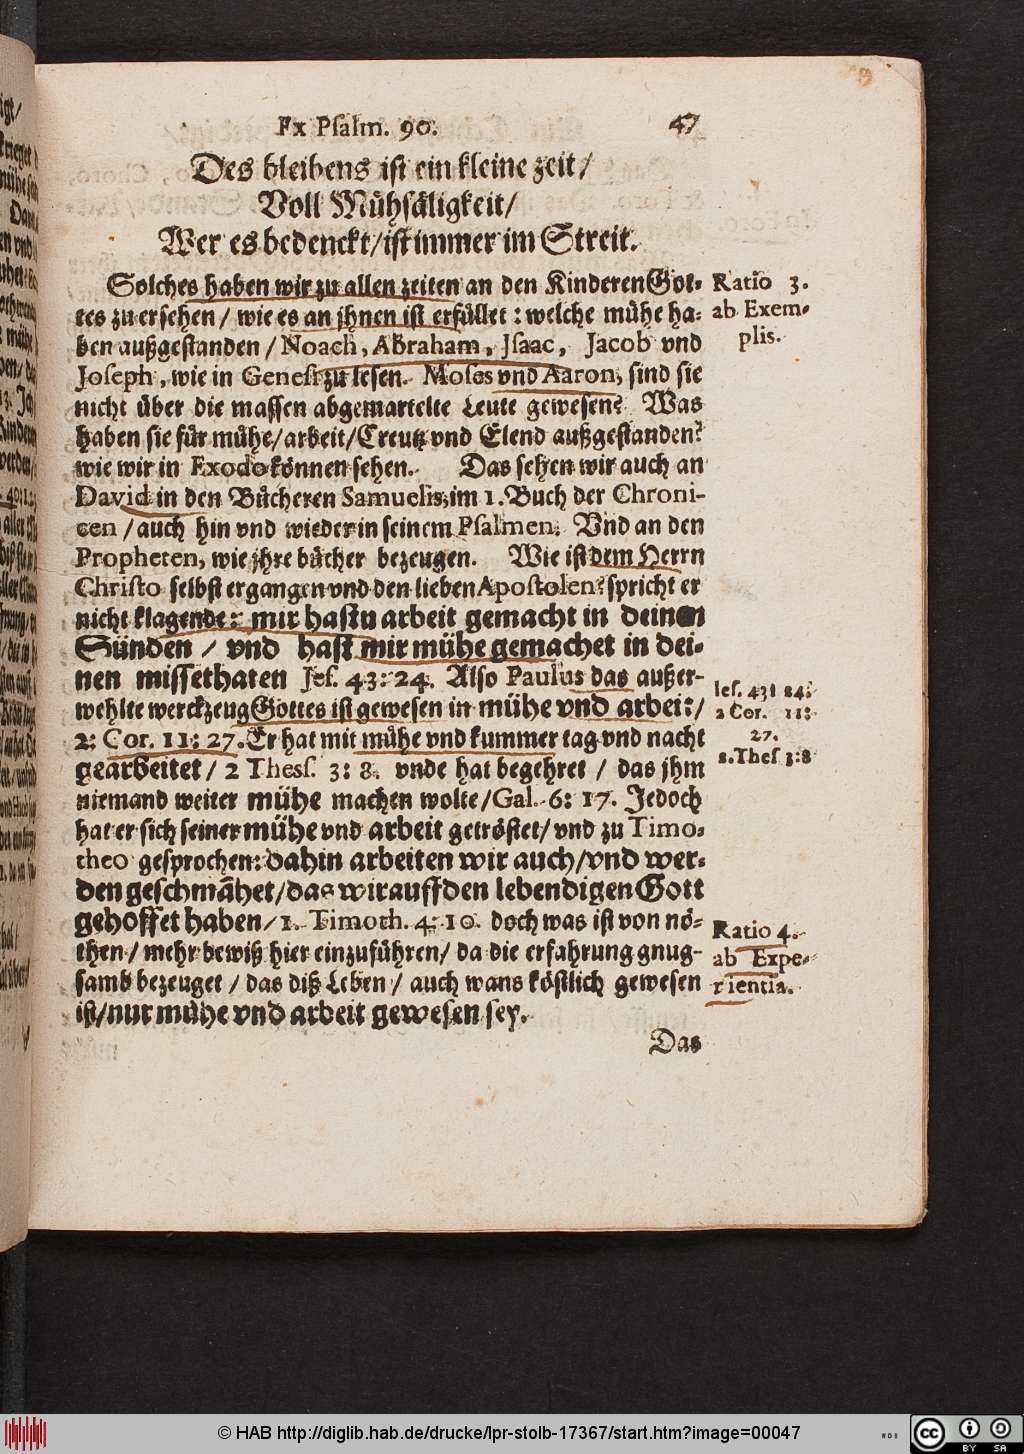 Ex Psalm. 90. 47
Des bleibens ist ein kleine zeit/
Voll Mühsäligkeit/
Wer es bedenckt/ist immer im Streit.
Solches haben wir zu allen zeiten an den Kinderen Got-
tes zu ersehen/ wie es an jhnen ist erfüllet: welche mühe ha-
ben außgestanden/ Noach, Abraham, Jsaac, Jacob vnd
Joseph, wie in Genesi zu lesen. Moses vnd Aaron, sind sie
nicht über die massen abgemartelte Leute gewesen? Was
haben sie für mühe/arbeit/Creutz vnd Elend außgestanden?
wie wir in Exodo können sehen. Das sehen wir auch an
David in den Bücheren Samuelis, im 1. Buch der Chroni-
cen/auch hin vnd wieder in seinem Psalmen. Vnd an den
Propheten, wie jhre bücher bezeugen. Wie ist dem Herrn
Christo selbst ergangen vnd den lieben Apostolen? spricht er
nicht klagende: mir hastu arbeit gemacht in deinen
Sünden / vnd hast mir mühe gemachet in dei-
nen missethaten Jes. 43: 24. Also Paulus das außer-
wehlte werckzeug Gottes ist gewesen in mühe vnd arbeit/
2: Cor. 11: 27. Er hat mit mühe vnd kummer tag vnd nacht
gearbeitet/ 2 Thess. 3: 8. vnde hat begehret / das jhm
niemand weiter mühe machen wolte/Gal. 6: 17. Jedoch
hat er sich seiner mühe vnd arbeit getröstet/ vnd zu Timo-
theo gesprochen: dahin arbeiten wir auch/vnd wer-
den geschmähet/das wir auff den lebendigen Gott
gehoffet haben/ 1. Timoth. 4: 10. doch was ist von nö-
then/ mehr bewiß hier einzuführen/ da die erfahrung gnug-
samb bezeuget / das diß Leben / auch wans köstlich gewesen
ist/nur mühe vnd arbeit gewesen sey.
Das
Ratio 3.
ab Exem-
plis.
Ies. 43: 24:
2 Cor. 11:
27.
2. Thes 3:8
Ratio 4.
ab Expe-
rientia.
© HAB http://diglib.hab.de/drucke/lpr-stolb-17367/start.htm?image=00047
WOB
cc BY SA